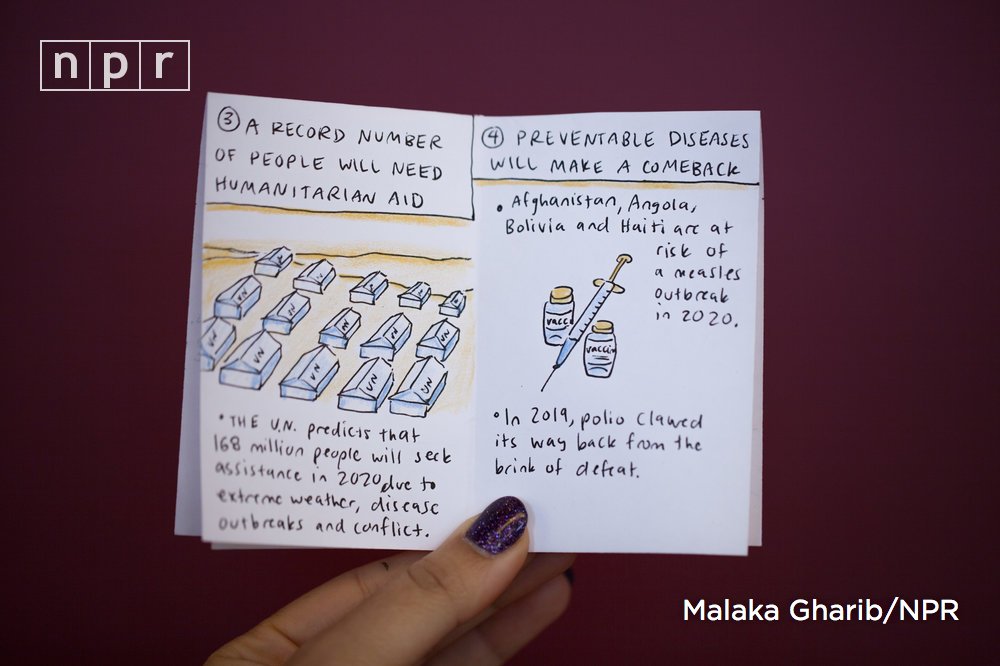 npr
③ A RECORD NUMBER
OF PEOPLE WILL NEED
HUMANITARIAN AID
UN
UN
UN
UN
UN
UN
UN
UN
UN
• THE U.N. predicts that
168 million people will seek
assistance in 2020, due to
extreme weather, disease
outbreaks and conflict.
④ PREVENTABLE DISEASES
WILL MAKE A COMEBACK
• Afghanistan, Angola,
Bolivia and Haiti are at
risk of
a measles
outbreak
in 2020.
vacci
vaccin
• In 2019, polio clawed
its way back from the
brink of defeat.
Malaka Gharib/NPR